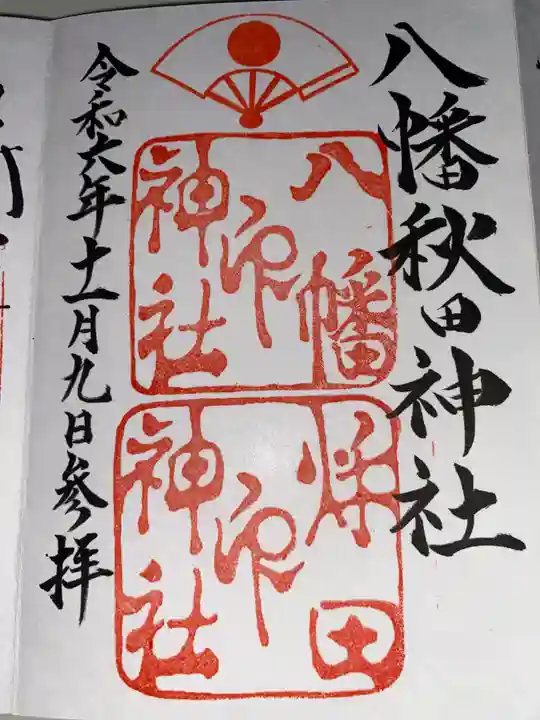 八幡秋田神社
八幡
神社
印
秋田
神社
印
令和六年十一月九日参拝